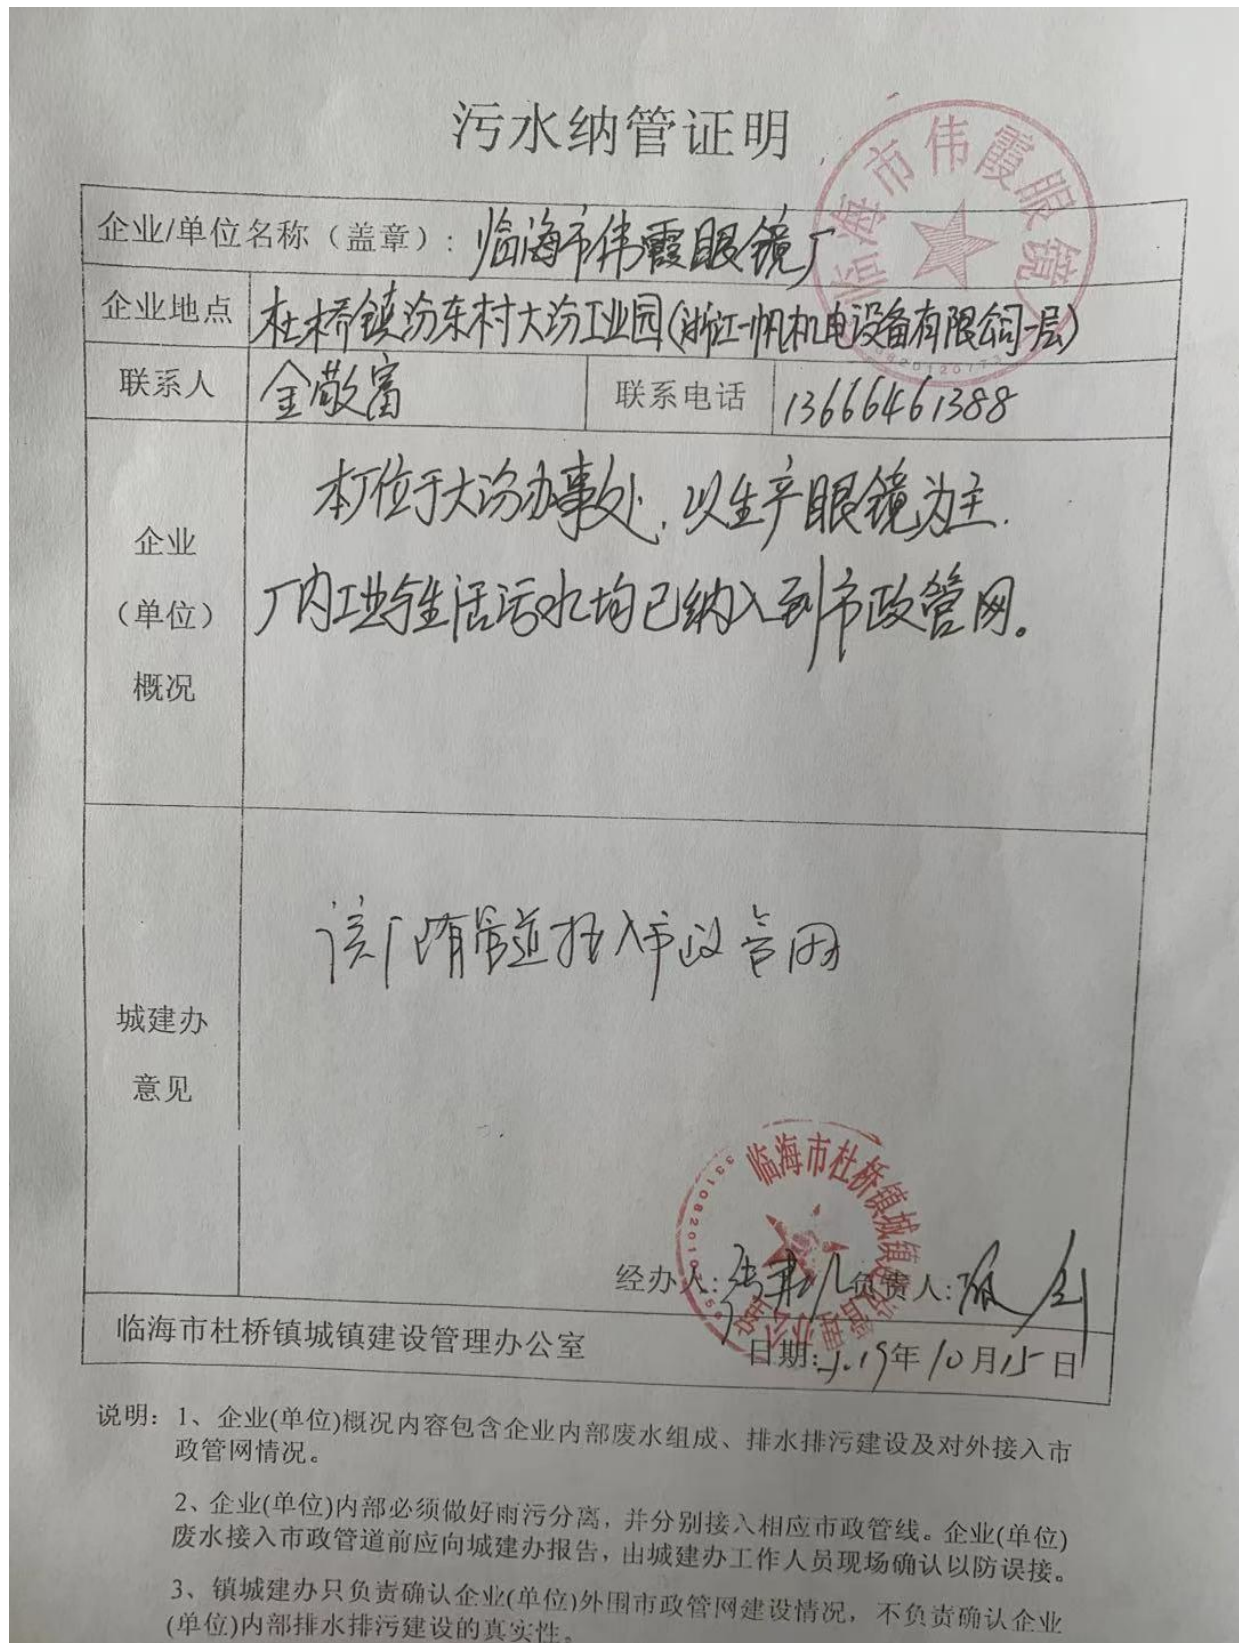 污水纳管证明
临海市伟霞眼镜厂
企业/单位名称（盖章）：临海市伟霞眼镜厂
企业地点 杜桥镇汾东村大汾工业园(浙江一帆机电设备有限公司一层)
联系人 金敬富 联系电话 13666461388
企业
（单位）
概况
本厂位于大汾办事处，以生产眼镜为主.
厂内工业与生活污水均已纳入到市政管网。
城建办
意见
该厂有管道接入市政管网
临海市杜桥镇城镇建设管理办公室
经办人: 负责人:
临海市杜桥镇城镇建设管理办公室
日期: 19年10月15日
说明：1、企业(单位)概况内容包含企业内部废水组成、排水排污建设及对外接入市
政管网情况。
2、企业(单位)内部必须做好雨污分离，并分别接入相应市政管线。企业(单位)
废水接入市政管道前应向城建办报告，由城建办工作人员现场确认以防误接。
3、镇城建办只负责确认企业(单位)外围市政管网建设情况，不负责确认企业
(单位)内部排水排污建设的真实性。